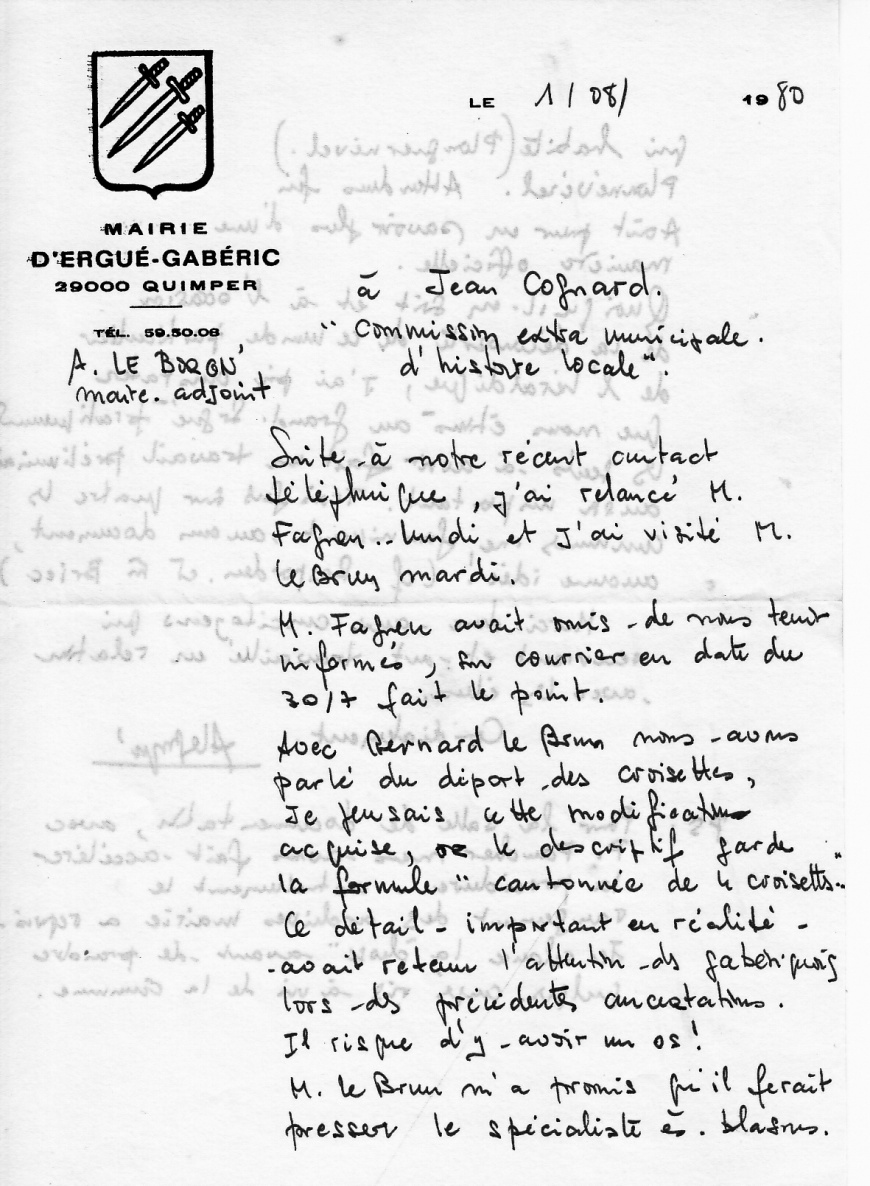 LE 1/08/ 1980
MAIRIE
D'ERGUÉ-GABÉRIC
29000 QUIMPER
TÉL. 59.50.08
A. LE BORGN'
maire. adjoint
à Jean Cognard.
"Commission extra municipale.
d'histoire locale".
Suite à notre récent contact
téléphonique, j'ai relancé M.
Fagren.. lundi et j'ai visité M.
le Brun mardi.
M. Fagren avait omis de nous tenir
informés, son courrier en date du
30/7 fait le point.
Avec Bernard le Brun nous avons
parlé du départ des croisettes,
Je pensais cette modification
acquise, or le descriptif garde
la formule "cantonnée de 4 croisettes".
Ce détail - important en réalité -
avait retenu l'attention des gabériquois
lors des précédentes
Il risque d'y avoir un os!
M. le Brun m'a promis qu'il ferait
presser le spécialiste ès. blasons.